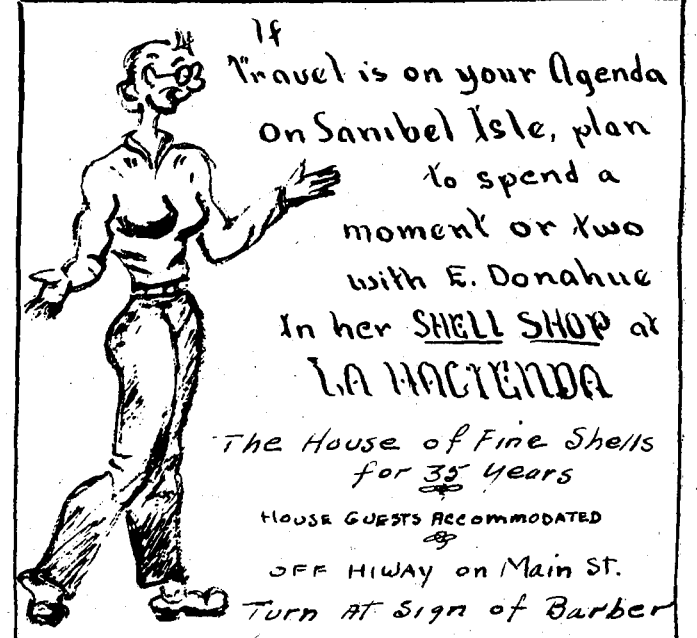 If
Travel is on your Agenda
on Sanibel Isle, plan
to spend a
moment or two
with E. Donahue
In her SHELL SHOP at
LA HACIENDA
The House of Fine Shells
for 35 Years
HOUSE GUESTS ACCOMMODATED
OFF HIWAY on Main St.
Turn At Sign of Barber